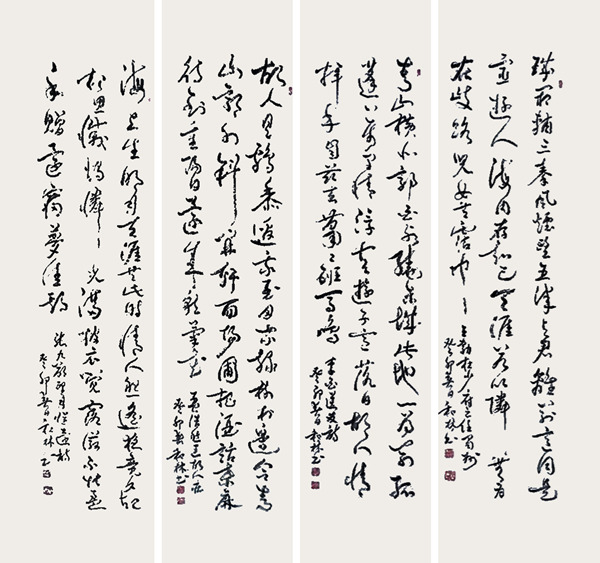 城阙辅三秦风烟望五津与君离别意同是
宦游人海内存知己天涯若比邻无为
在歧路儿女共沾巾
王勃杜少府之任蜀州
癸卯春日和林书
青山横北郭白水绕东城此地一为别孤
蓬万里征浮云游子意落日故人情
挥手自兹去萧萧班马鸣
李白送友人诗
癸卯春日和林书
故人具鸡黍邀我至田家绿树村边合青
山郭外斜开轩面场圃把酒话桑麻
待到重阳日还来就菊花
孟浩然过故人庄
癸卯春和林书
海上生明月天涯共此时情人怨遥夜竟夕起
相思灭烛怜光满披衣觉露滋不堪盈
手赠还寝梦佳期
张九龄望月怀远诗
癸卯春日和林书